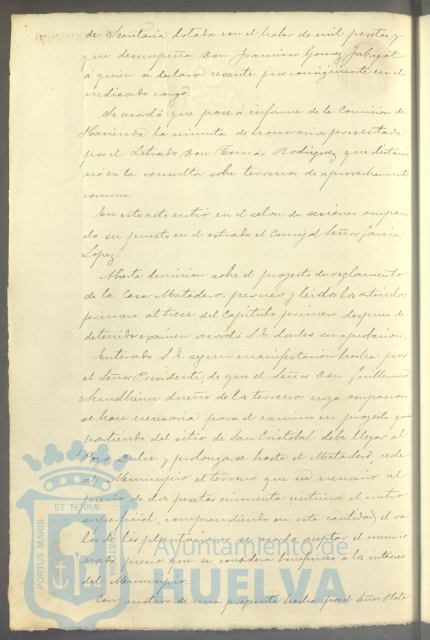 de Secretaria dotada con el haber de mil pesetas y
que desempeña Don Francisco Gomez
á quien se declara cesante por consiguiente en el
indicado cargo.
Se acordó que pase á informe de la Comision de
Hacienda la minuta de honorarios presentada
por el Letrado Don Tomás Rodriguez que dictami
nó en la consulta sobre terrenos de aprovechamiento
comun.
En este acto entró en el salon de sesiones ocupan
do su puesto en el estrado el Concejal Señor Garcia
Lopez.
Abierta discusion sobre el proyecto de reglamento
de la Casa Matadero y leidos los articulos
primero al trece del Capitulo primero despues de
detenido examen acordó S.E. darles su aprobacion.
Enterado S.E. segun manifestacion hecha por
el Señor Presidente, de que el Señor Don Guillermo
Sundheim dueño de los terrenos cuya ocupacion
se hace necesaria para el camino en proyecto que
partiendo del sitio de San Cristobal debe llegar al
Pozo Dulce y prolongarse hasta el Matadero, cede
al Municipio el terreno que sea necesario al
precio de dos pesetas cincuenta centimos el metro
superficial, comprendiendo en esta cantidad el va
lor de las plantaciones, se acordó aceptar el mencio
nado precio que se considera beneficioso á los intereses
del Municipio.
Con motivo de una pregunta hecha por el Señor
PORTUS MARIS
ET TERRÆ
CUSTODIA
Ayuntamiento de
HUELVA